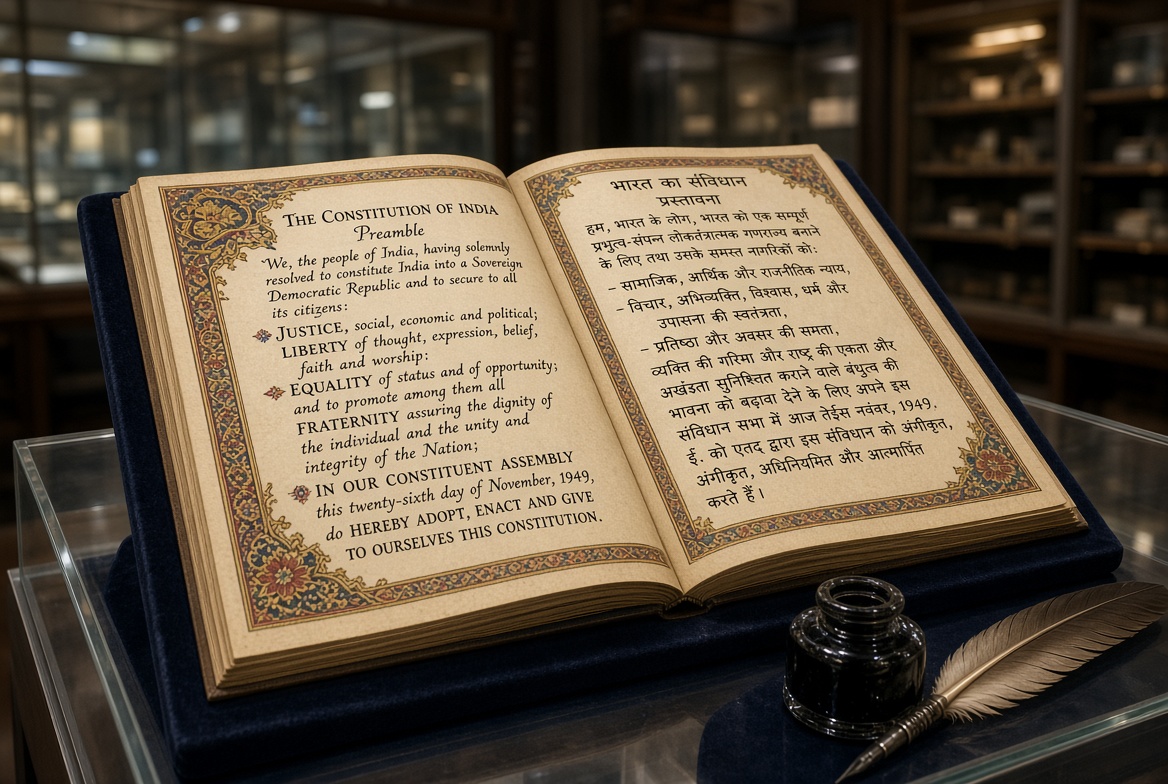 THE CONSTITUTION OF INDIA
Preamble
We, the people of India, having solemnly
resolved to constitute India into a Sovereign
Democratic Republic and to secure to all
its citizens:
JUSTICE, social, economic and political;
LIBERTY of thought, expression, belief,
faith and worship:
EQUALITY of status and of opportunity;
and to promote among them all
FRATERNITY assuring the dignity of
the individual and the unity and
integrity of the Nation;
IN OUR CONSTITUENT ASSEMBLY
this twenty-sixth day of November, 1949,
do HEREBY ADOPT, ENACT AND GIVE
TO OURSELVES THIS CONSTITUTION.
भारत का संविधान
प्रस्तावना
हम, भारत के लोग, भारत को एक सम्पूर्ण
प्रभुत्व-संपन लोकतंत्रात्मक गणराज्य बनाने
के लिए तथा उसके समस्त नागरिकों को:
– सामाजिक, आर्थिक और राजनीतिक न्याय,
– विचार, अभिव्यक्ति, विश्वास, धर्म और
उपासना की स्वतंत्रता,
– प्रतिष्ठा और अवसर की समता,
व्यक्ति की गरिमा और राष्ट्र की एकता और
अखंडता सुनिश्चित कराने वाले बंधुत्व की
भावना को बढ़ावा देने के लिए अपने इस
संविधान सभा में आज तेईस नवंवर, 1949.
ई. को एतद द्वारा इस संविधान को अंगीकृत,
अंगीकृत, अधिनियमित और आत्मार्पित
करते हैं।